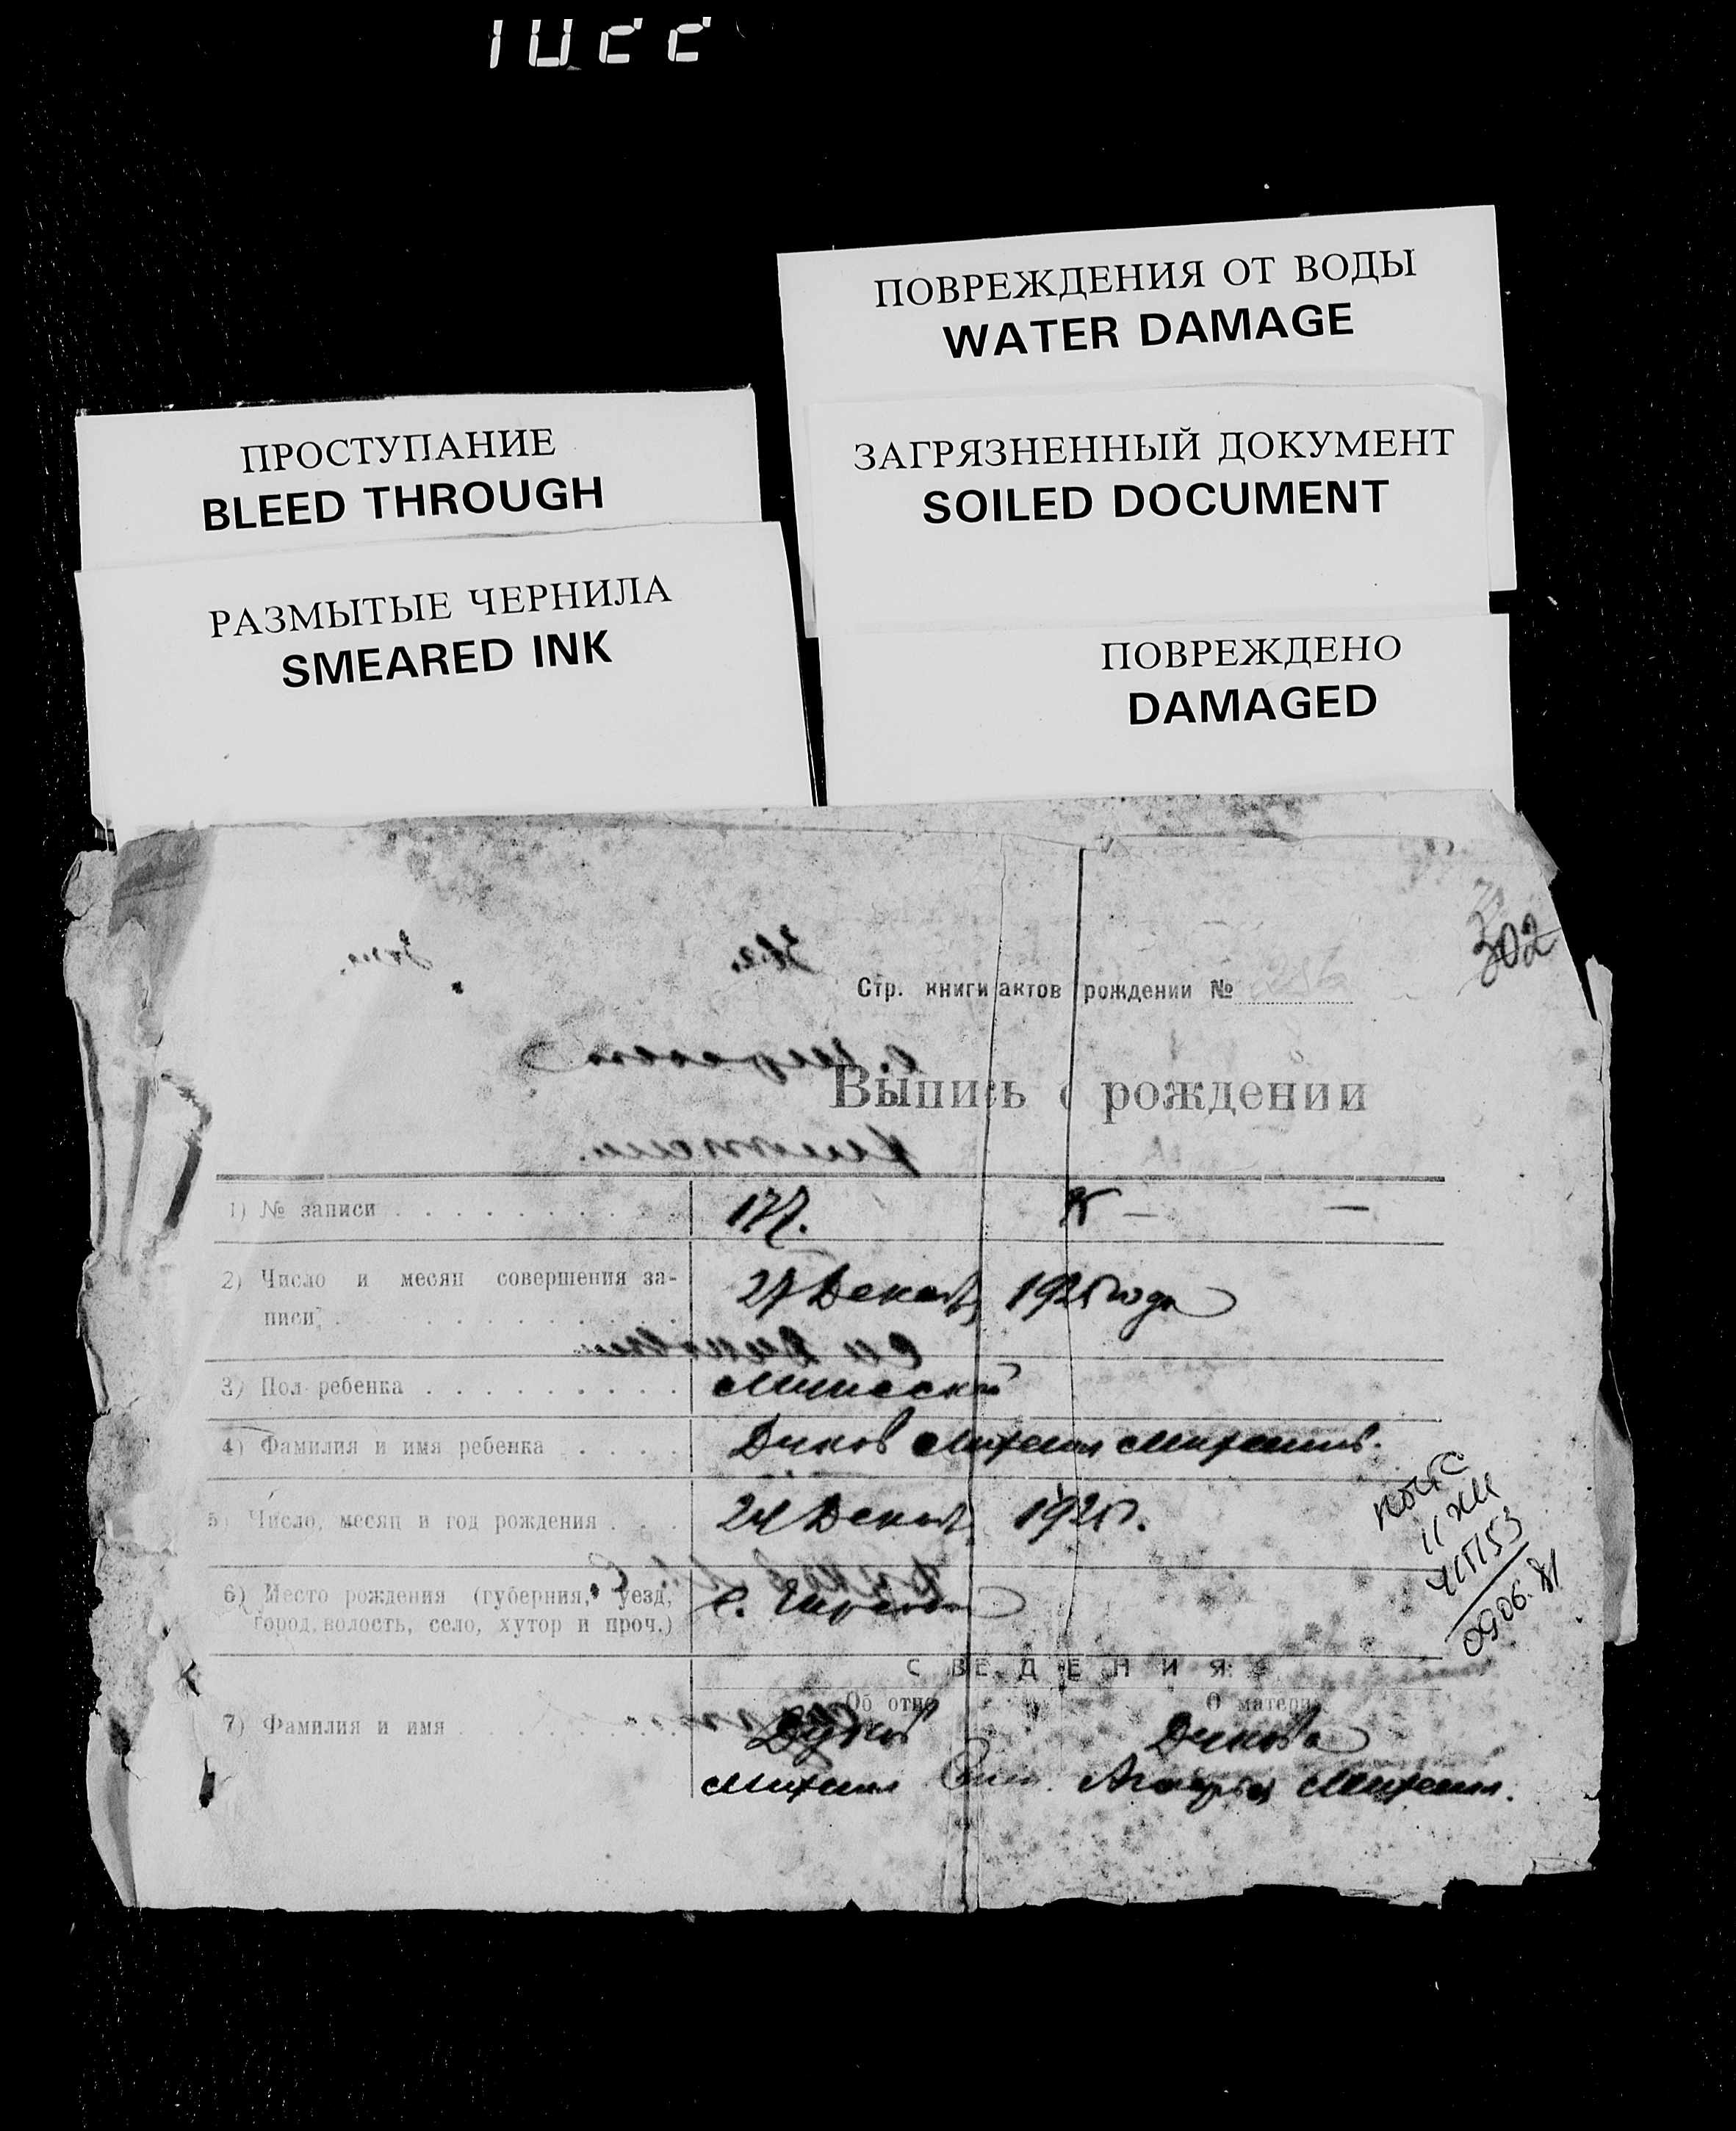 ПОВРЕЖДЕНИЯ ОТ ВОДЫ
WATER DAMAGE
ПРОСТУПАНИЕ
BLEED THROUGH
ЗАГРЯЗНЕННЫЙ ДОКУМЕНТ
SOILED DOCUMENT
РАЗМЫТЫЕ ЧЕРНИЛА
SMEARED INK
ПОВРЕЖДЕНО
DAMAGED
302
Стр. книги актов рождении №
Выпись о рождении
1) № записи 177.
2) Число и месяц совершения за-
писи 27 Декаб 1925 года
3) Пол ребенка
4) Фамилия и имя ребенка Диков Михаил Михаилов.
5) Число, месяц и год рождения 24 Декаб 1925 г.
6) Место рождения (губерния, уезд,
город, волость, село, хутор и проч.)
СВЕДЕНИЯ:
Об отце О матери
7) Фамилия и имя
Дикова
Михаил Михаил.
09.06.81